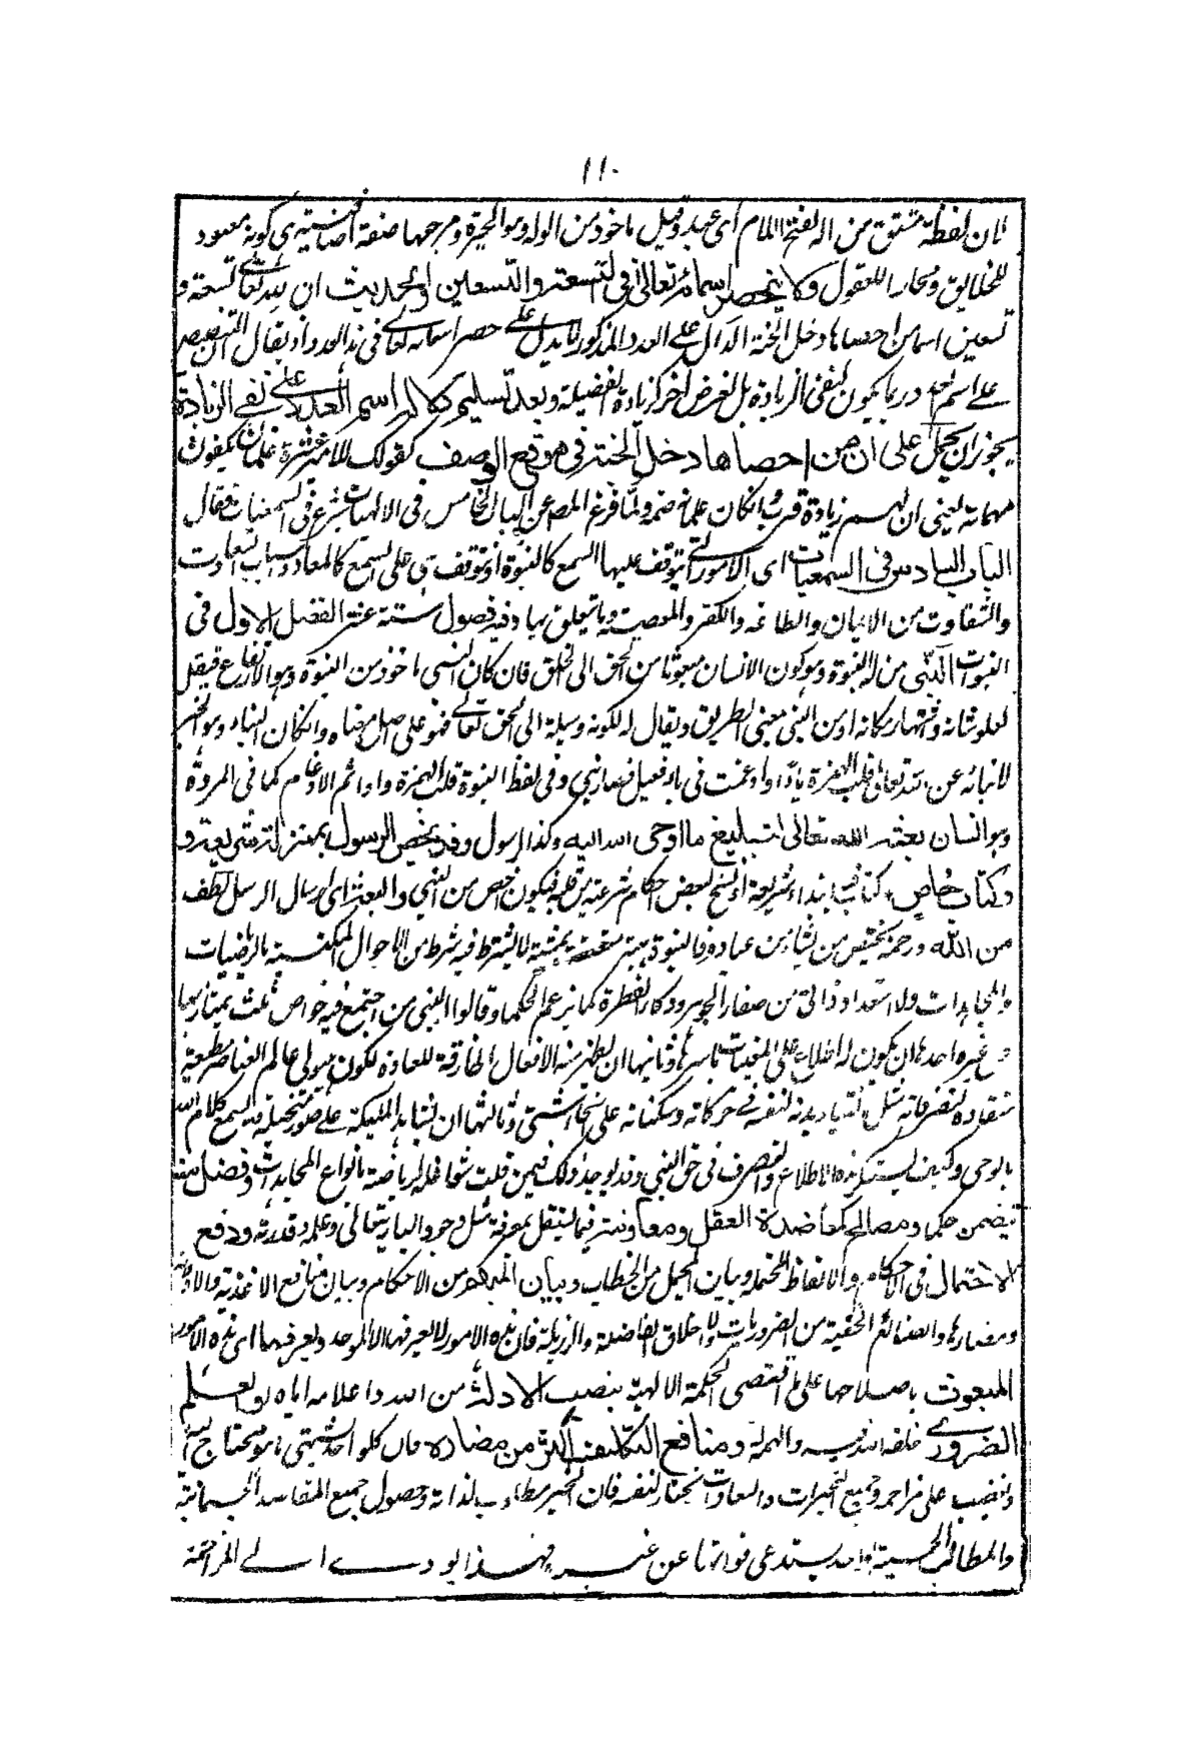 ١١٠
فان لفظة مشتق من اله بفتح اللام اى عبد وقيل ماخوذ من الوله وهو الحيرة ومرجعها صفة اضافية هى كونه معبود
للخلايق ومحارا للعقول ولا ينحصر اسمائه تعالى فى التسعة والتسعين او الحديث ان لله تعالى تسعة و
تسعين اسما من احصاها دخل الجنة الدال على العدد المذكور لا يدل على حصر اسمائه تعالى فى هذا العدد اذ يقال التنصيص
على اسم العدد ربما يكون لنفى الزيادة بل لغرض اخر كزيادة الفضيلة وبعد تسليم دلالة اسم العدد على نفى الزيادة
يجوز ان يحمل على ان من احصاها دخل الجنة فى موقع الوصف كقولك للامير عشرة غلمان يكفون
مهماته بمعنى ان لهم زيادة قرب وان كان غلمانه ولما فرغ المص عن الباب الخامس فى الالهيات شرع فى السمعيات فقال
الباب السادس فى السمعيات اى الامور التى يتوقف عليها السمع كالنبوة او تتوقف هى على السمع كالمعاد واسباب السعادت
والشقاوت من الايمان والطاعة والكفر والمعصية وما يتعلق بها وفيه فصول ستة عشر الفصل الاول فى
النبوات النبى من له النبوة وهو كون الانسان مبعوثا من الحق الى الخلق فان كان النبى ماخوذ من النبوة وهو الارتفاع فيقل
لعلو شانه واشتهار مكانه او من النبى بمعنى الطريق ويقال له لكونه وسيلة الى الحق تعالى فهو على اصل معناه وان كان النباء وهو الخبر
لانبائه عن الله تعالى قلب الهمزة ياء او ادغمت فى ياء فعيل فصار نبى وفى لفظ النبوة قلبت الهمزة واوا ثم الادغام كما فى المروة
وهو انسان بعثه الله تعالى لتبليغ ما اوحى الله اليه وكذا الرسول وقد يخص الرسول بمن له شريعة و
وكتاب خاص كتاب ابتداء شريعة او نسخ لبعض احكام شريعة من قبله فيكون اخص من النبى والبعث اى ارسال الرسل لطف
من الله ورحمة يختص من يشاء من عباده فالنبوة هبة متعلقة بمشية لا يشترط فيه شرط من الاحوال المكتسبة بالرياضيات
والمجاهدات ولا استعداد ذاتى من صفاء الجوهر وذكاء الفطرة كما يزعم الحكما وقالوا النبى من اجتمع فيه خواص ثلث يمتاز بها
عن غيره احدها ان يكون له اطلاع على المغيبات باسرها وثانيها ان يظهر منه الافعال الخارقة للعادة لكون هيولى عالم العناصر مطيعة
منقادة لتصرفاته مثل انقياد بدنه لنفسه فى حركاته وسكناته على انحاء شتى وثالثها ان يشاهد المليكة على صور متخيلة ويسمع كلام الله
بالوحى وكيف يستنكر هذه الاطلاع والتصرف فى حق النبى وقد يوجد ذلك فيمن قلت شواغله لرياضة بانواع المجاهدات وفضل
تتضمن حكما ومصالح كمعاضدة العقل ومعاونته فيما يستقل بمعرفة مثل وجود البارى تعالى وعلمه وقدرته ودفع
الاحتمال فى الاحكام والالفاظ المحتمله وبيان المجمل من الخطاب وبيان المبهم من الاحكام وبيان منافع الاغذية والادوية
ومضارها والصنائع الخفية من الضروريات والاخلاق الفاضلة والرزيلة فان هذه الامور لا يعرفها الا الموحد ويعرفها اى هذه الامور
المبعوث باصلاحها على ما اقتضى الحكمة الالهية بنصب الادلة من الله واعلامه اياه او العلم
الضرورى خلقه الله فيه والهمه ومنافع التكليف اكثر من مضاره فان كل واحد يشتهى ما هو محتاج اليه
ويغضب على مزاحمه وجميع الخيرات والسعادات يختار لنفسه فان الخير مطلوب لذاته وحصول جميع المقاصد الجسمانية
والمطالب الحسية لواحد يستدعى فواتها عن غيره فهذا يودى الى المزاحمة